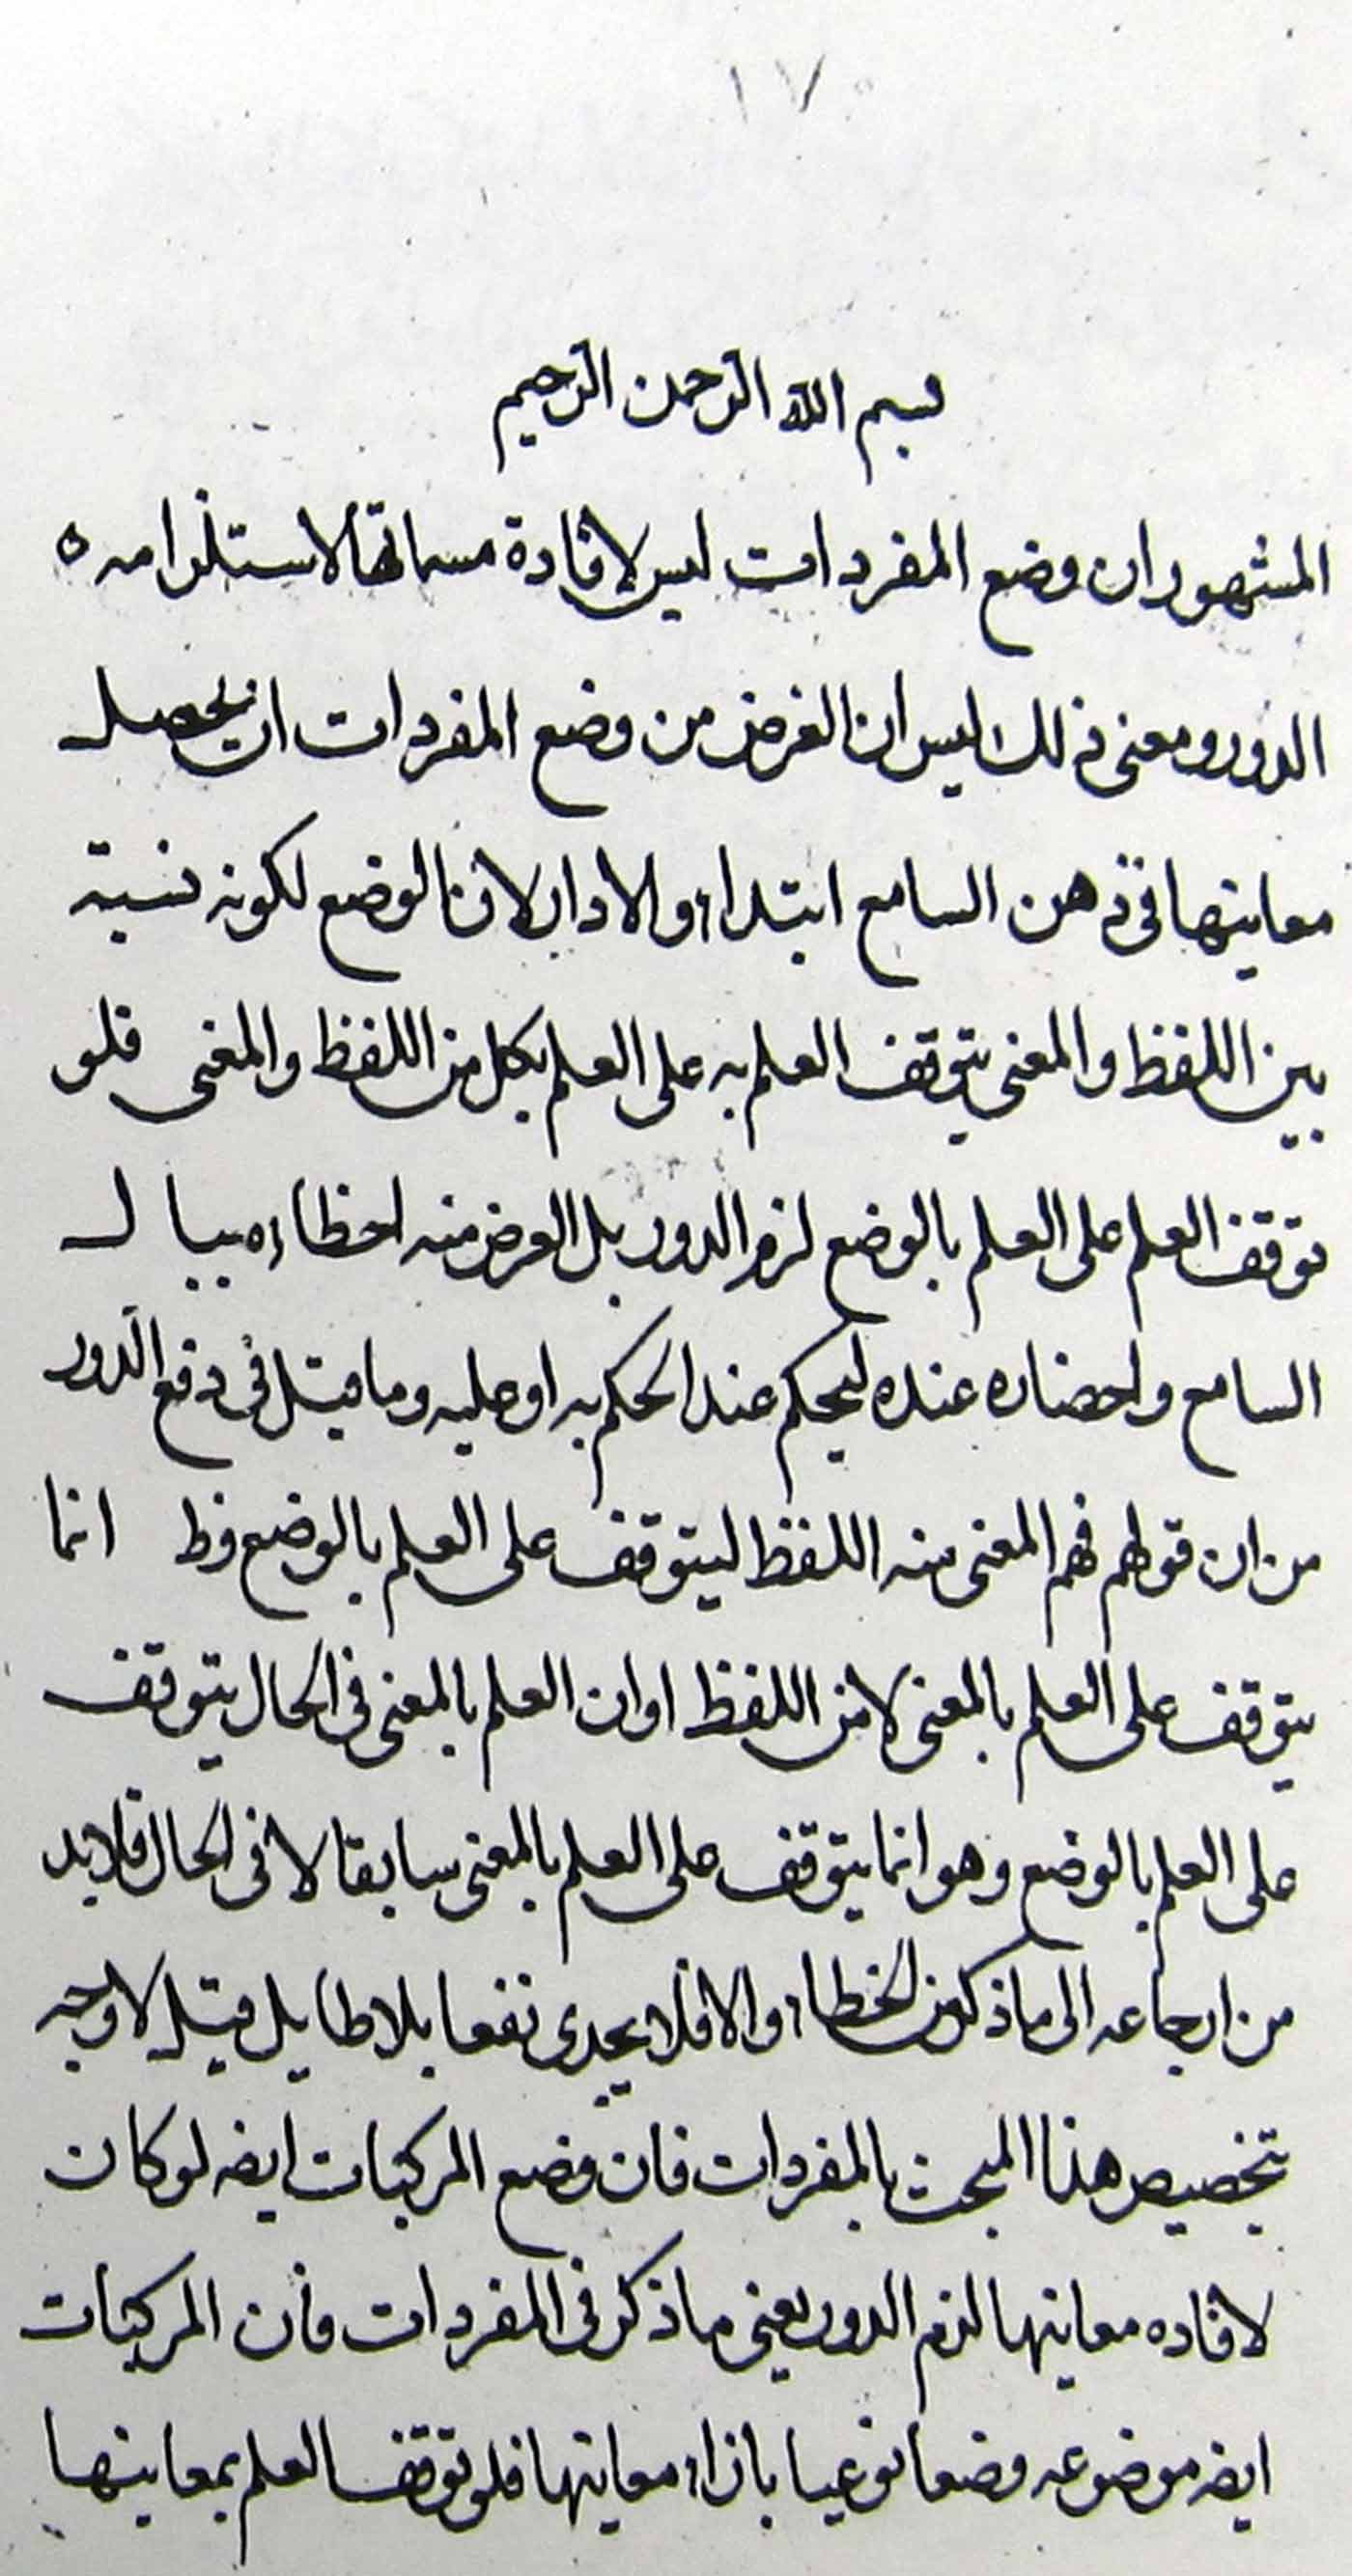 ١٧
بسم الله الرحمن الرحيم
المشهور ان وضع المفردات ليس لافادة مسماتها لاستلزامه
الدور ومعنى ذلك ليس ان الغرض من وضع المفردات ان يحصل
معاينها فى ذهن السامع ابتداء والا دار لان الوضع لكونه نسبة
بين اللفظ والمعنى يتوقف العلم به على العلم بكل من اللفظ والمعنى فلو
توقف العلم على العلم بالوضع لزم الدور بل الغرض منه اخطاره ببال
السامع واحضاره عنده ليحكم عند الحكم به او عليه وما قيل فى دفع الدور
من ان قولهم فهم المعنى منه اللفظ ليتوقف على العلم بالوضع وظ انما
يتوقف على العلم بالمعنى لا من اللفظ او ان العلم بالمعنى فى الحال يتوقف
على العلم بالوضع وهو انما يتوقف على العلم بالمعنى سابقا لا فى الحال فلابد
من ارجاعه الى ما ذكر من والا فلا يجدى نفعا بلا طايل قيل لا وجه
تخصيص هذا المبحث بالمفردات فان وضع المركبات ايضه لو كان
لافاده معانيها لزم الدور يعنى ما ذكر فى المفردات فان المركبات
ايضه موضوعه وضعا نوعيا بازاء معانيها فلو توقف العلم بمعاينها